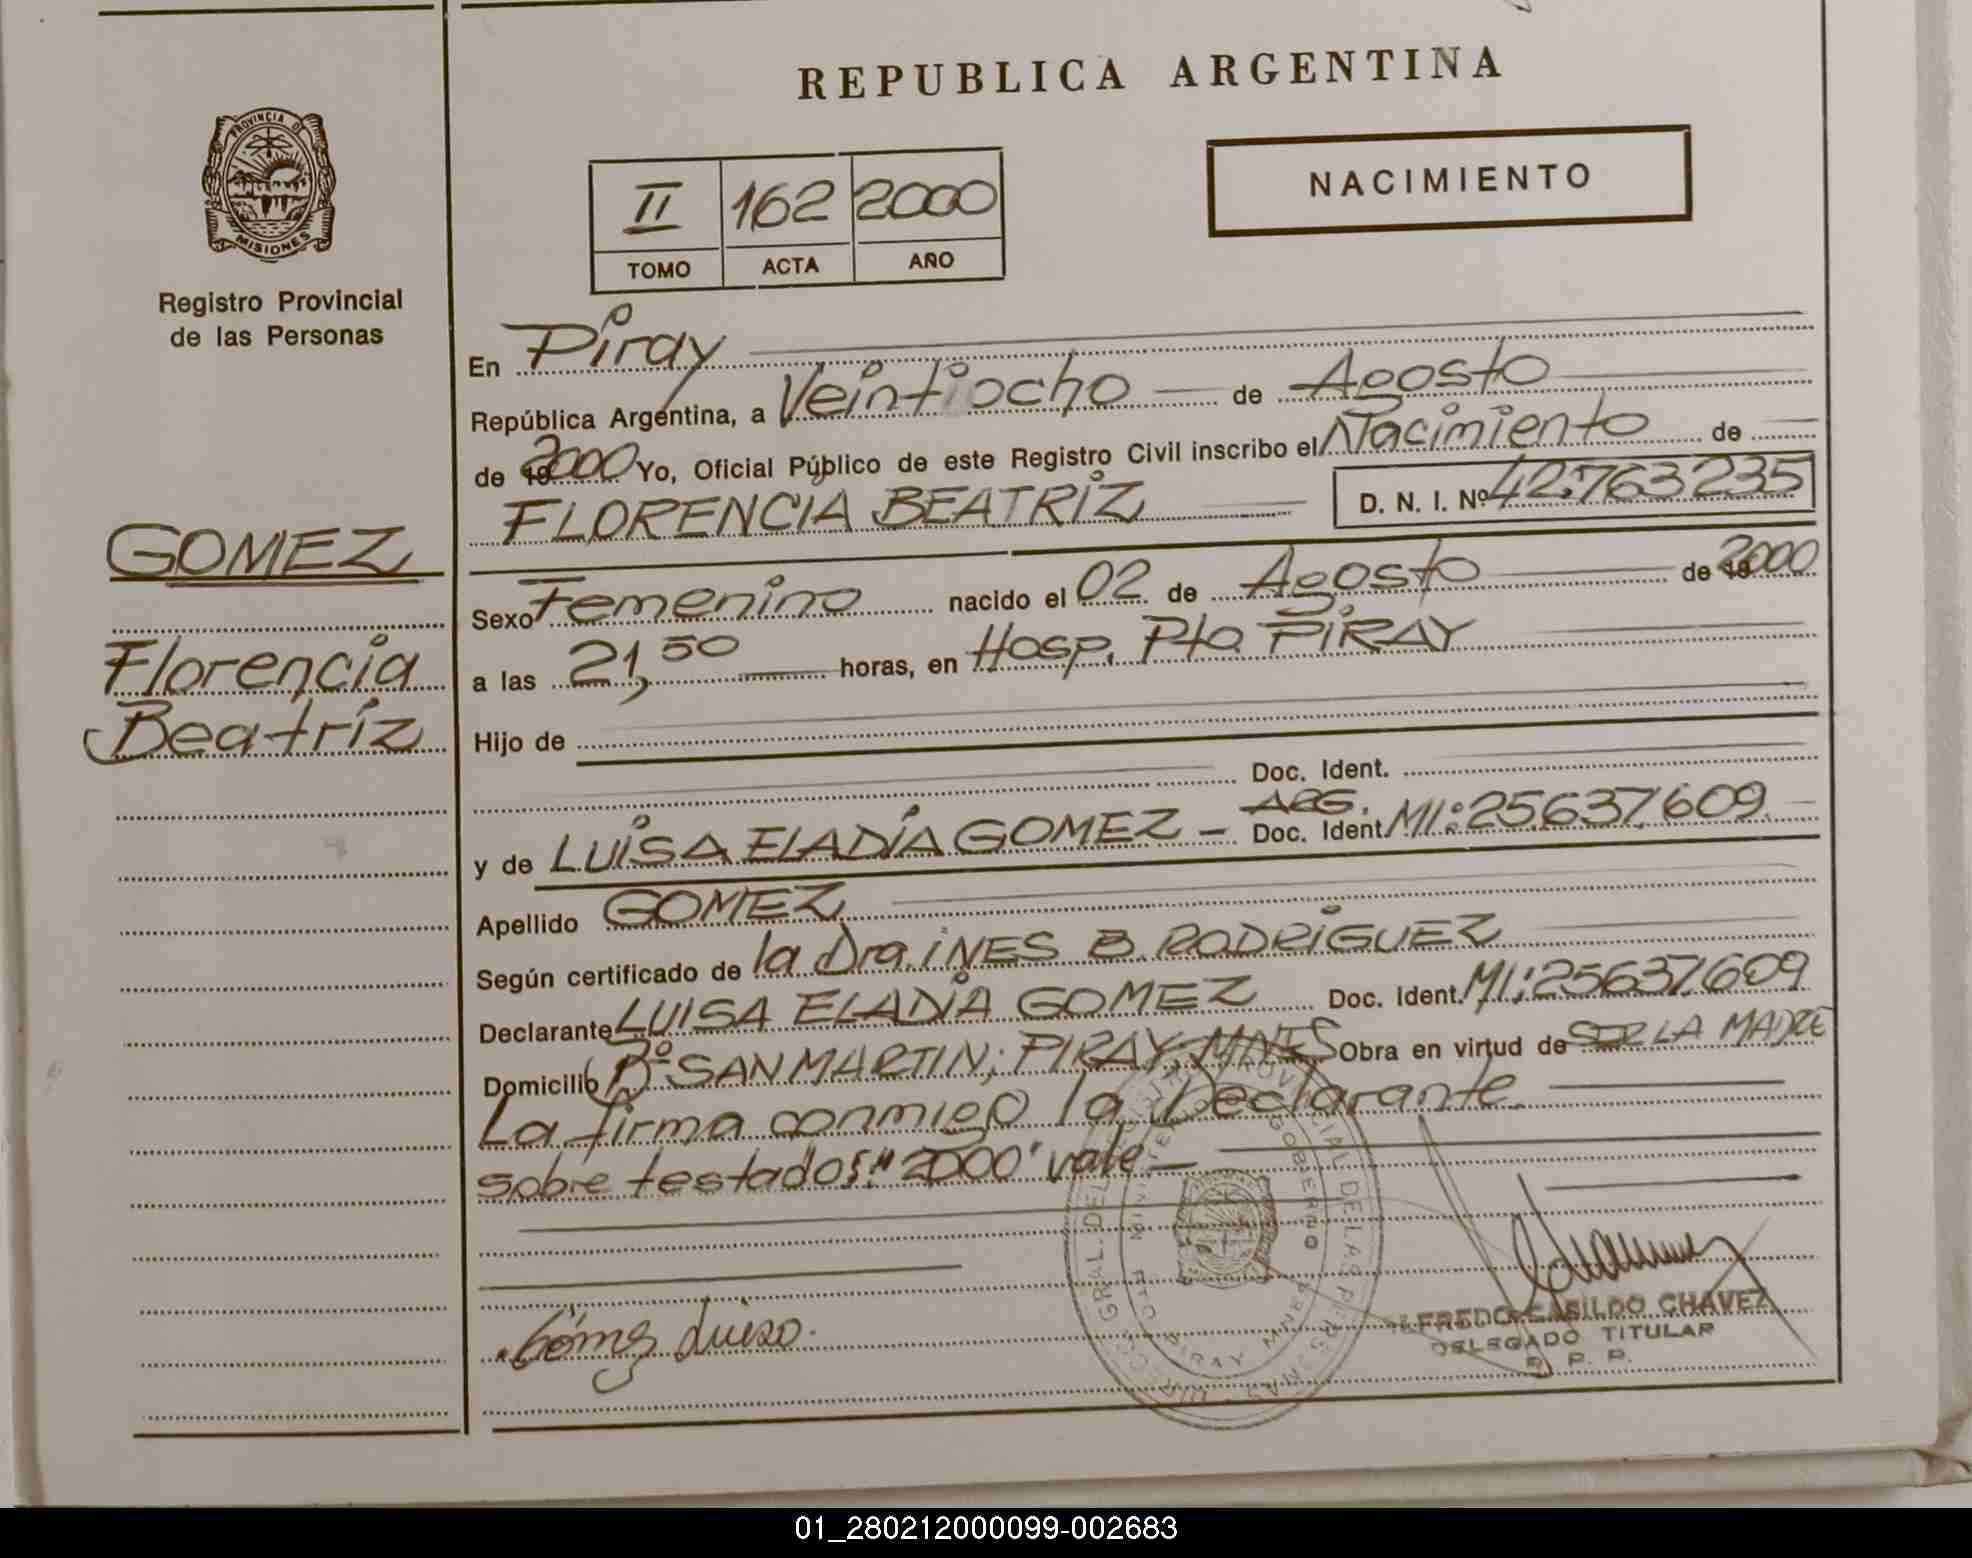 REPUBLICA ARGENTINA
PROVINCIA DE
MISIONES
Registro Provincial
de las Personas
II 162 2000
TOMO ACTA AÑO
NACIMIENTO
En Piray
República Argentina, a Veintiocho de Agosto
de 2000 Yo, Oficial Público de este Registro Civil inscribo el Nacimiento de
FLORENCIA BEATRIZ D. N. I. Nº 42.763235
GOMEZ
Florencia
Beatriz
Sexo Femenino nacido el 02 de Agosto de 2000
a las 21,50 horas, en Hosp. Pto. PIRAY
Hijo de
Doc. Ident.
ARG.
y de LUISA ELADIA GOMEZ - Doc. Ident. MI: 25.637.609
Apellido GOMEZ
Según certificado de la Dra. INES B. RODRIGUEZ
Declarante LUISA ELADIA GOMEZ Doc. Ident. MI: 25637.609
Domicilio Bº SAN MARTIN; PIRAY; MNES Obra en virtud de SER LA MADRE
La firma conmigo la Declarante.
sobre testados: "2000" vale -
Gómez Luisa.
ALFREDO CASILDO CHAVEZ
DELEGADO TITULAR
R. P. P.
01_280212000099-002683